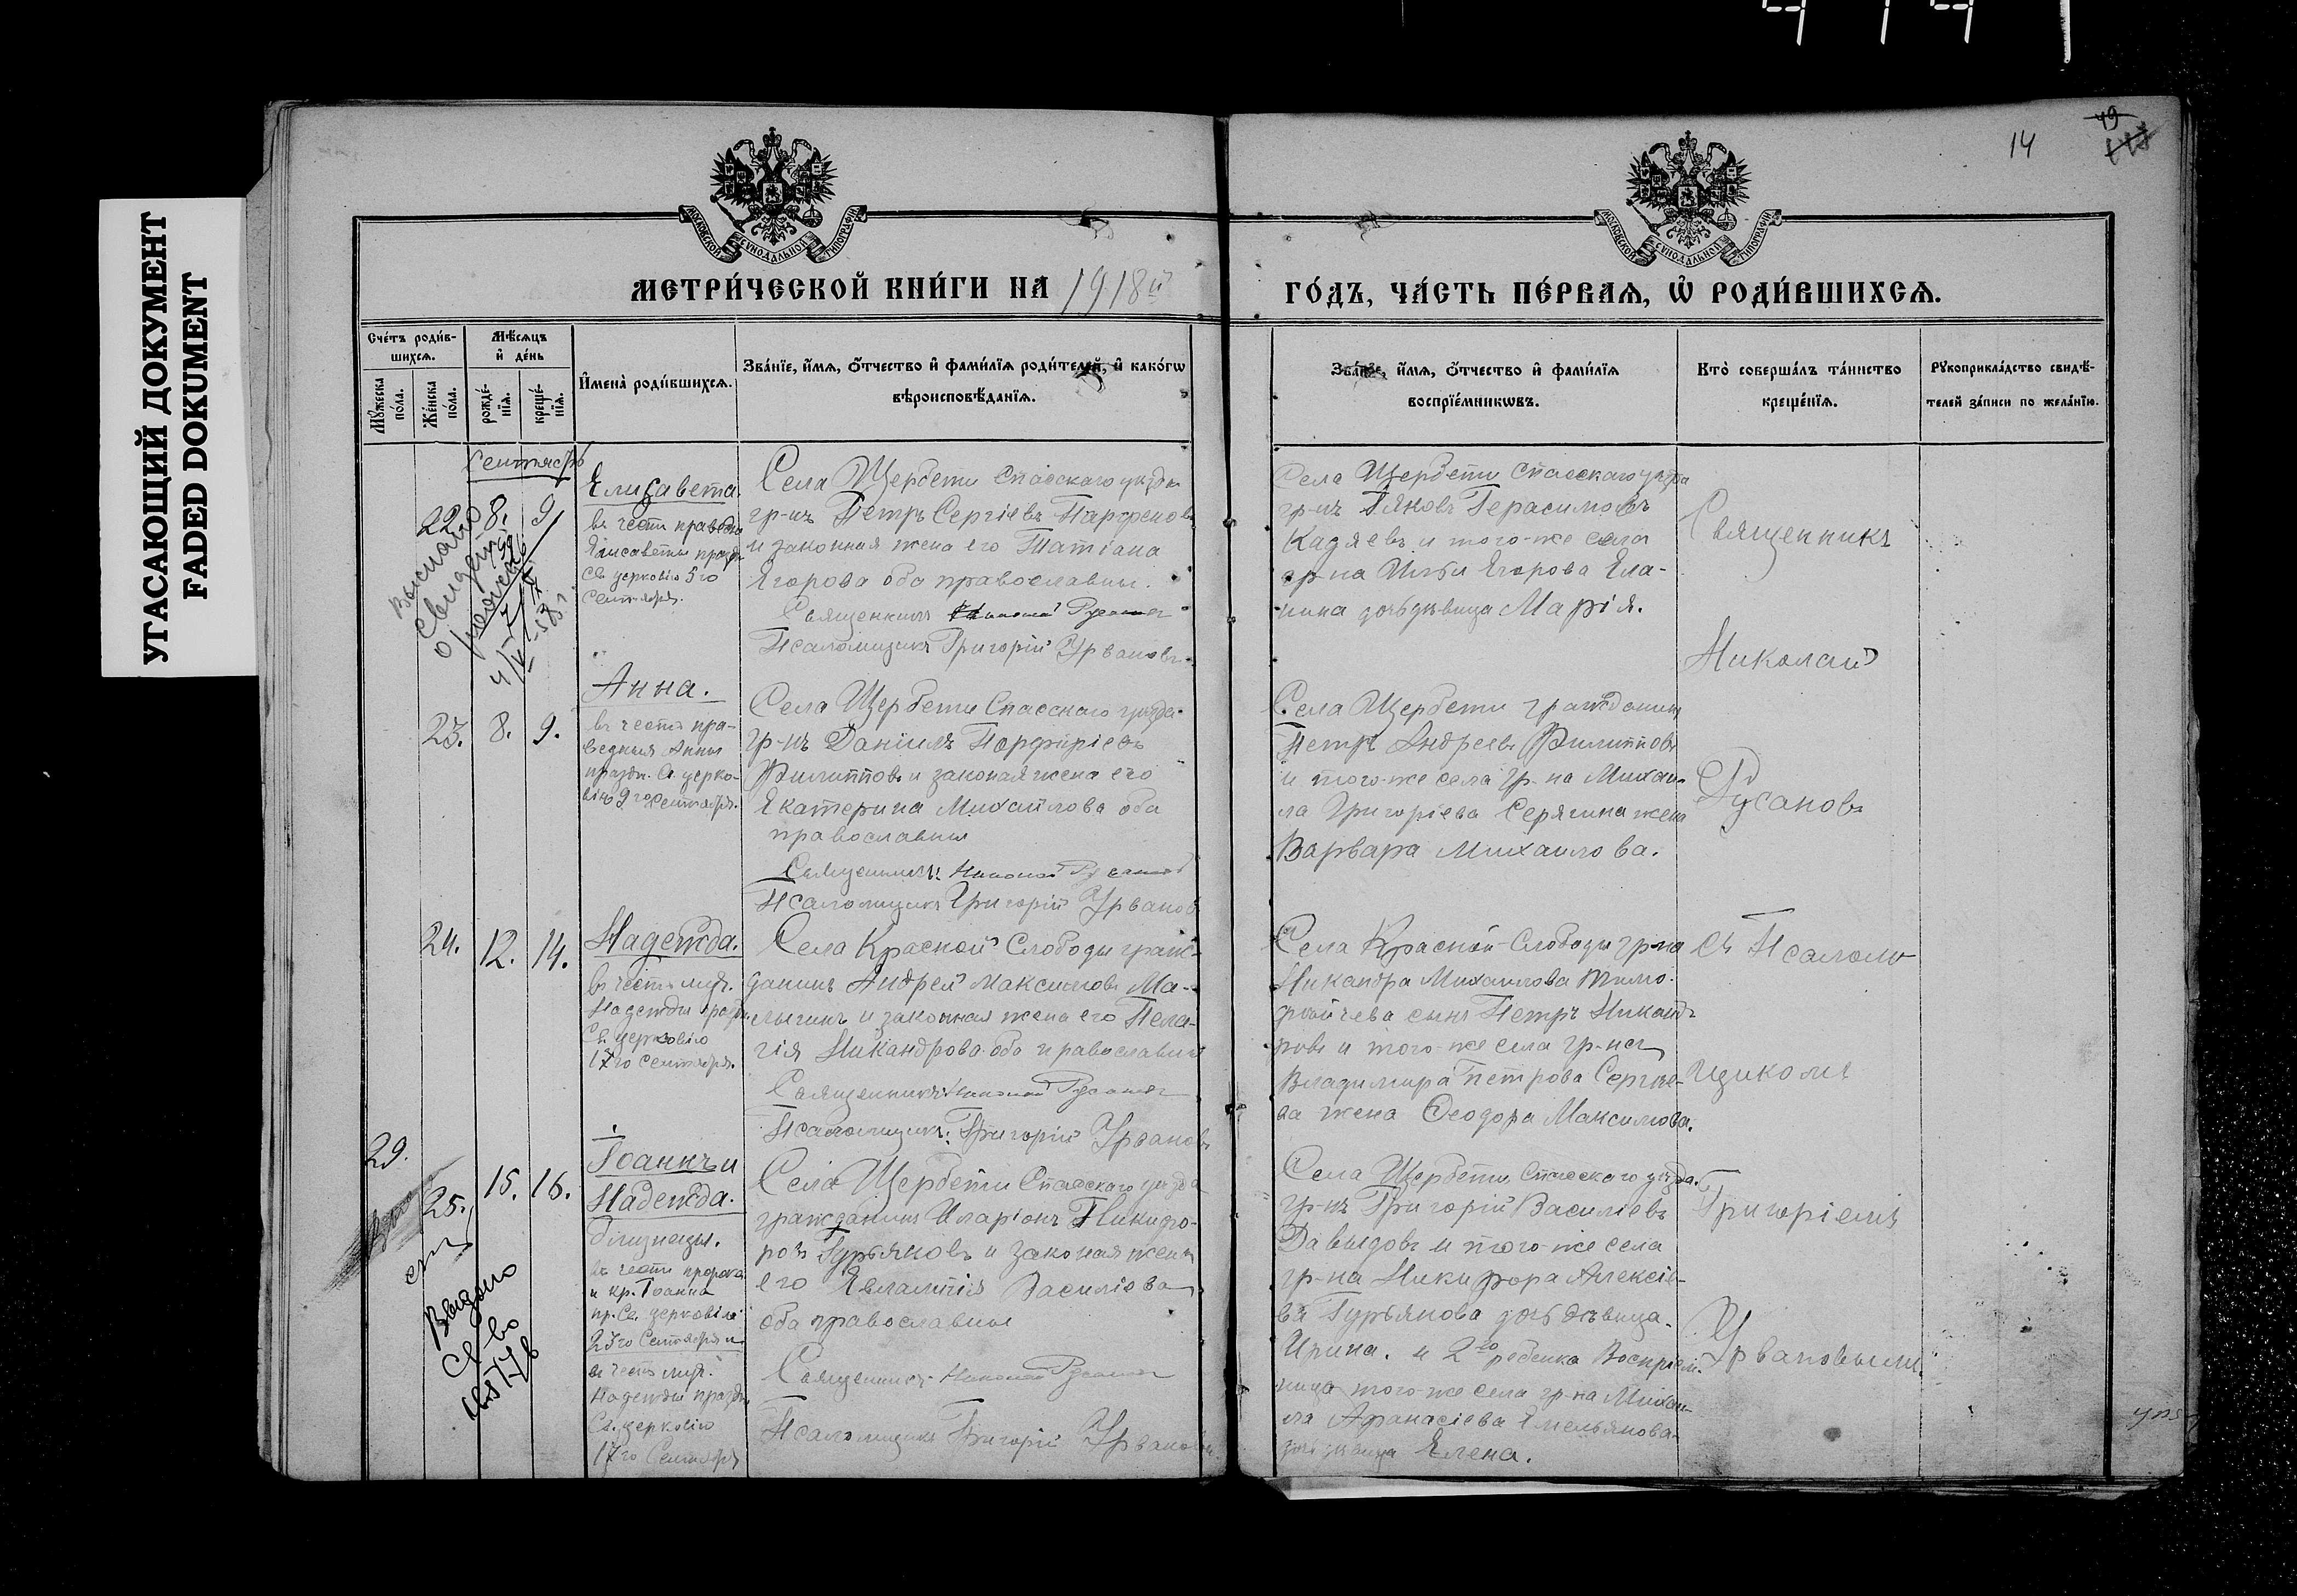 УГАСАЮЩИЙ ДОКУМЕНТ
FADED DOKUMENT
14
49
МОСКОВСКОЙ СѴНОДАЛЬНОЙ ТИПОГРАФІИ
МОСКОВСКОЙ СѴНОДАЛЬНОЙ ТИПОГРАФІИ
МЕТРИ́ЧЕСКОЙ КНИ́ГИ НА 1918й
ГО́ДЪ, ЧА́СТЬ ПЕ́РВАЯ, Ѡ РОДИ́ВШИХСЯ.
Сче́тъ роди́в-
шихся.
Мѣ́сяцъ
и де́нь
Мꙋ́жеска
по́ла.
Же́нска
по́ла.
рожде́-
нїя.
креще́-
нїя.
И҆мена̀ роди́вшихся.
Зва́нїе, и҆́мя, ѻ҆́тчество и҆ фами́лїя роди́телей, и҆ како́гѡ
вѣроисповѣ́данїя.
Зва́нїе, и҆́мя, ѻ҆́тчество и҆ фами́лїя
воспрїе́мникѡвъ.
Кто̀ соверша́лъ та́инство
креще́нїя.
Рꙋкоприкла́дство свидѣ́-
телей за́писи по жела́нїю.
Сентябрь
22. 8. 9
Елисавета.
въ честь праведн.
Елисаветы празд.
Св. церковію 5го
Сентября.
Села Щербети Спасскаго уѣзда
гр-нъ Петръ Сергіевъ Парфеновъ
и законная жена его Татіана
Егорова оба православны.
Священникъ Николай Русановъ
Псаломщикъ Григорій Урвановъ
Села Щербети Спасскаго уѣзда
гр-нъ Іяковъ Герасимовъ
Кадяевъ и того-же села
гр-на Ильи Егорова Ела-
нина дочь дѣвица Марія.
Священникъ
Николай
Русановъ
съ Псалом-
щикомъ
Григоріемъ
Урвановымъ.
Выслано
свидетел
о рождении
23. 8. 9.
Анна.
въ честь пра-
ведныя Анны
праздн. Св. церко-
вію 9го сентября.
Села Щербети Спасскаго уѣзда
гр-нъ Даніилъ Порфиріевъ
Филипповъ и законая жена его
Екатерина Михайлова оба
православны
Священникъ Николай Русановъ
Псаломщикъ Григорій Урвановъ
Села Щербети гражданинъ
Петръ Андреевъ Филипповъ
и того-же села гр-на Михаи-
ла Григоріева Серягина жена
Варвара Михаилова.
24. 12. 14.
Надежда.
въ честь муч.
Надежды празд.
Св. церковію
17го сентября.
Села Красной Слободы граж-
данинъ Андрей Максимовъ Ма-
лыгинъ и законная жена его Пела-
гія Никандрова оба православны
Священникъ Николай Русановъ
Псаломщикъ: Григорій Урвановъ
Села Красной-Слободы гр-на
Никандра Михаилова Тимо-
феичева сынъ Петръ Никанд-
ровъ и того-же села гр-на
Владимира Петрова Сергѣе-
ва жена Ѳеодора Максимова.
29. 25. 15. 16.
Іоаннъ и
Надежда.
близнецы.
въ честь пророка
и кр. Іоанна
пр. Св. церковію
23го Сентября и
въ честь муч.
Надежды празд.
Св. церковію
17го Сентября
Выдано
св-во
Села Щербети Спасскаго уѣзда
гражданинъ Иларіонъ Никифо-
ровъ Гурьяковъ и законая жена
его Евлампія Василіева
оба православны
Священникъ Николай Русановъ
Псаломщикъ Григорій Урвановъ
Села Щербети Спасскаго уѣзда.
гр-нъ Григорій Василіевъ
Давыдовъ и того-же села
гр-на Никифора Алексіе-
ва Гурьянова дочь дѣвица
Ирина. и 2го ребенка Воспріем-
ница того-же села гр-на Михаи-
ла Афанасіева Емельянова
дочь дѣвица Елена.